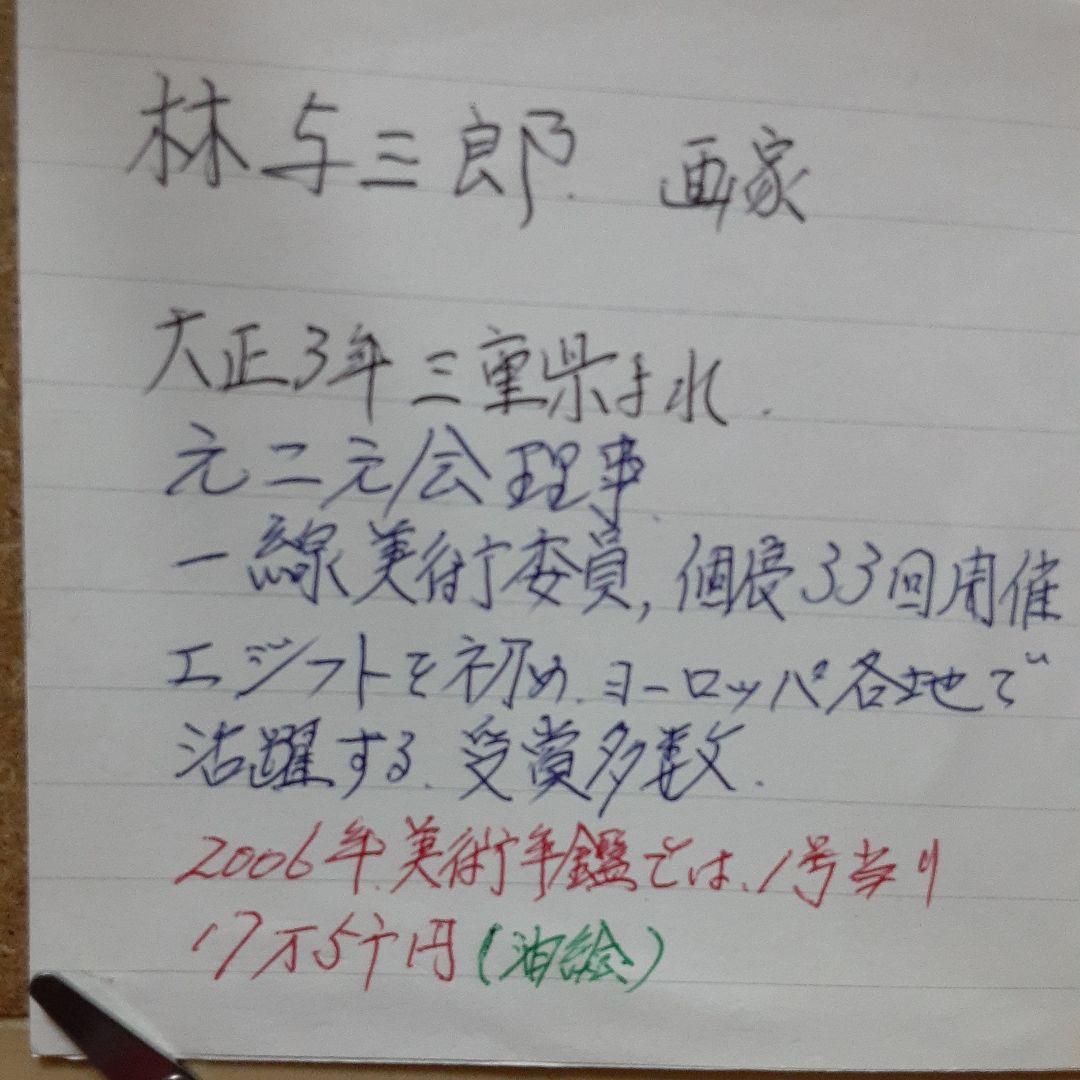 林与三郎 画家
大正3年三重県生れ.
元二元会理事.
一線美術委員,個展33回開催
エジフトを初め、ヨーロッパ各地で
活躍する、受賞多数.
2006年、美術年鑑では、1号当り
17万5千円(油絵)